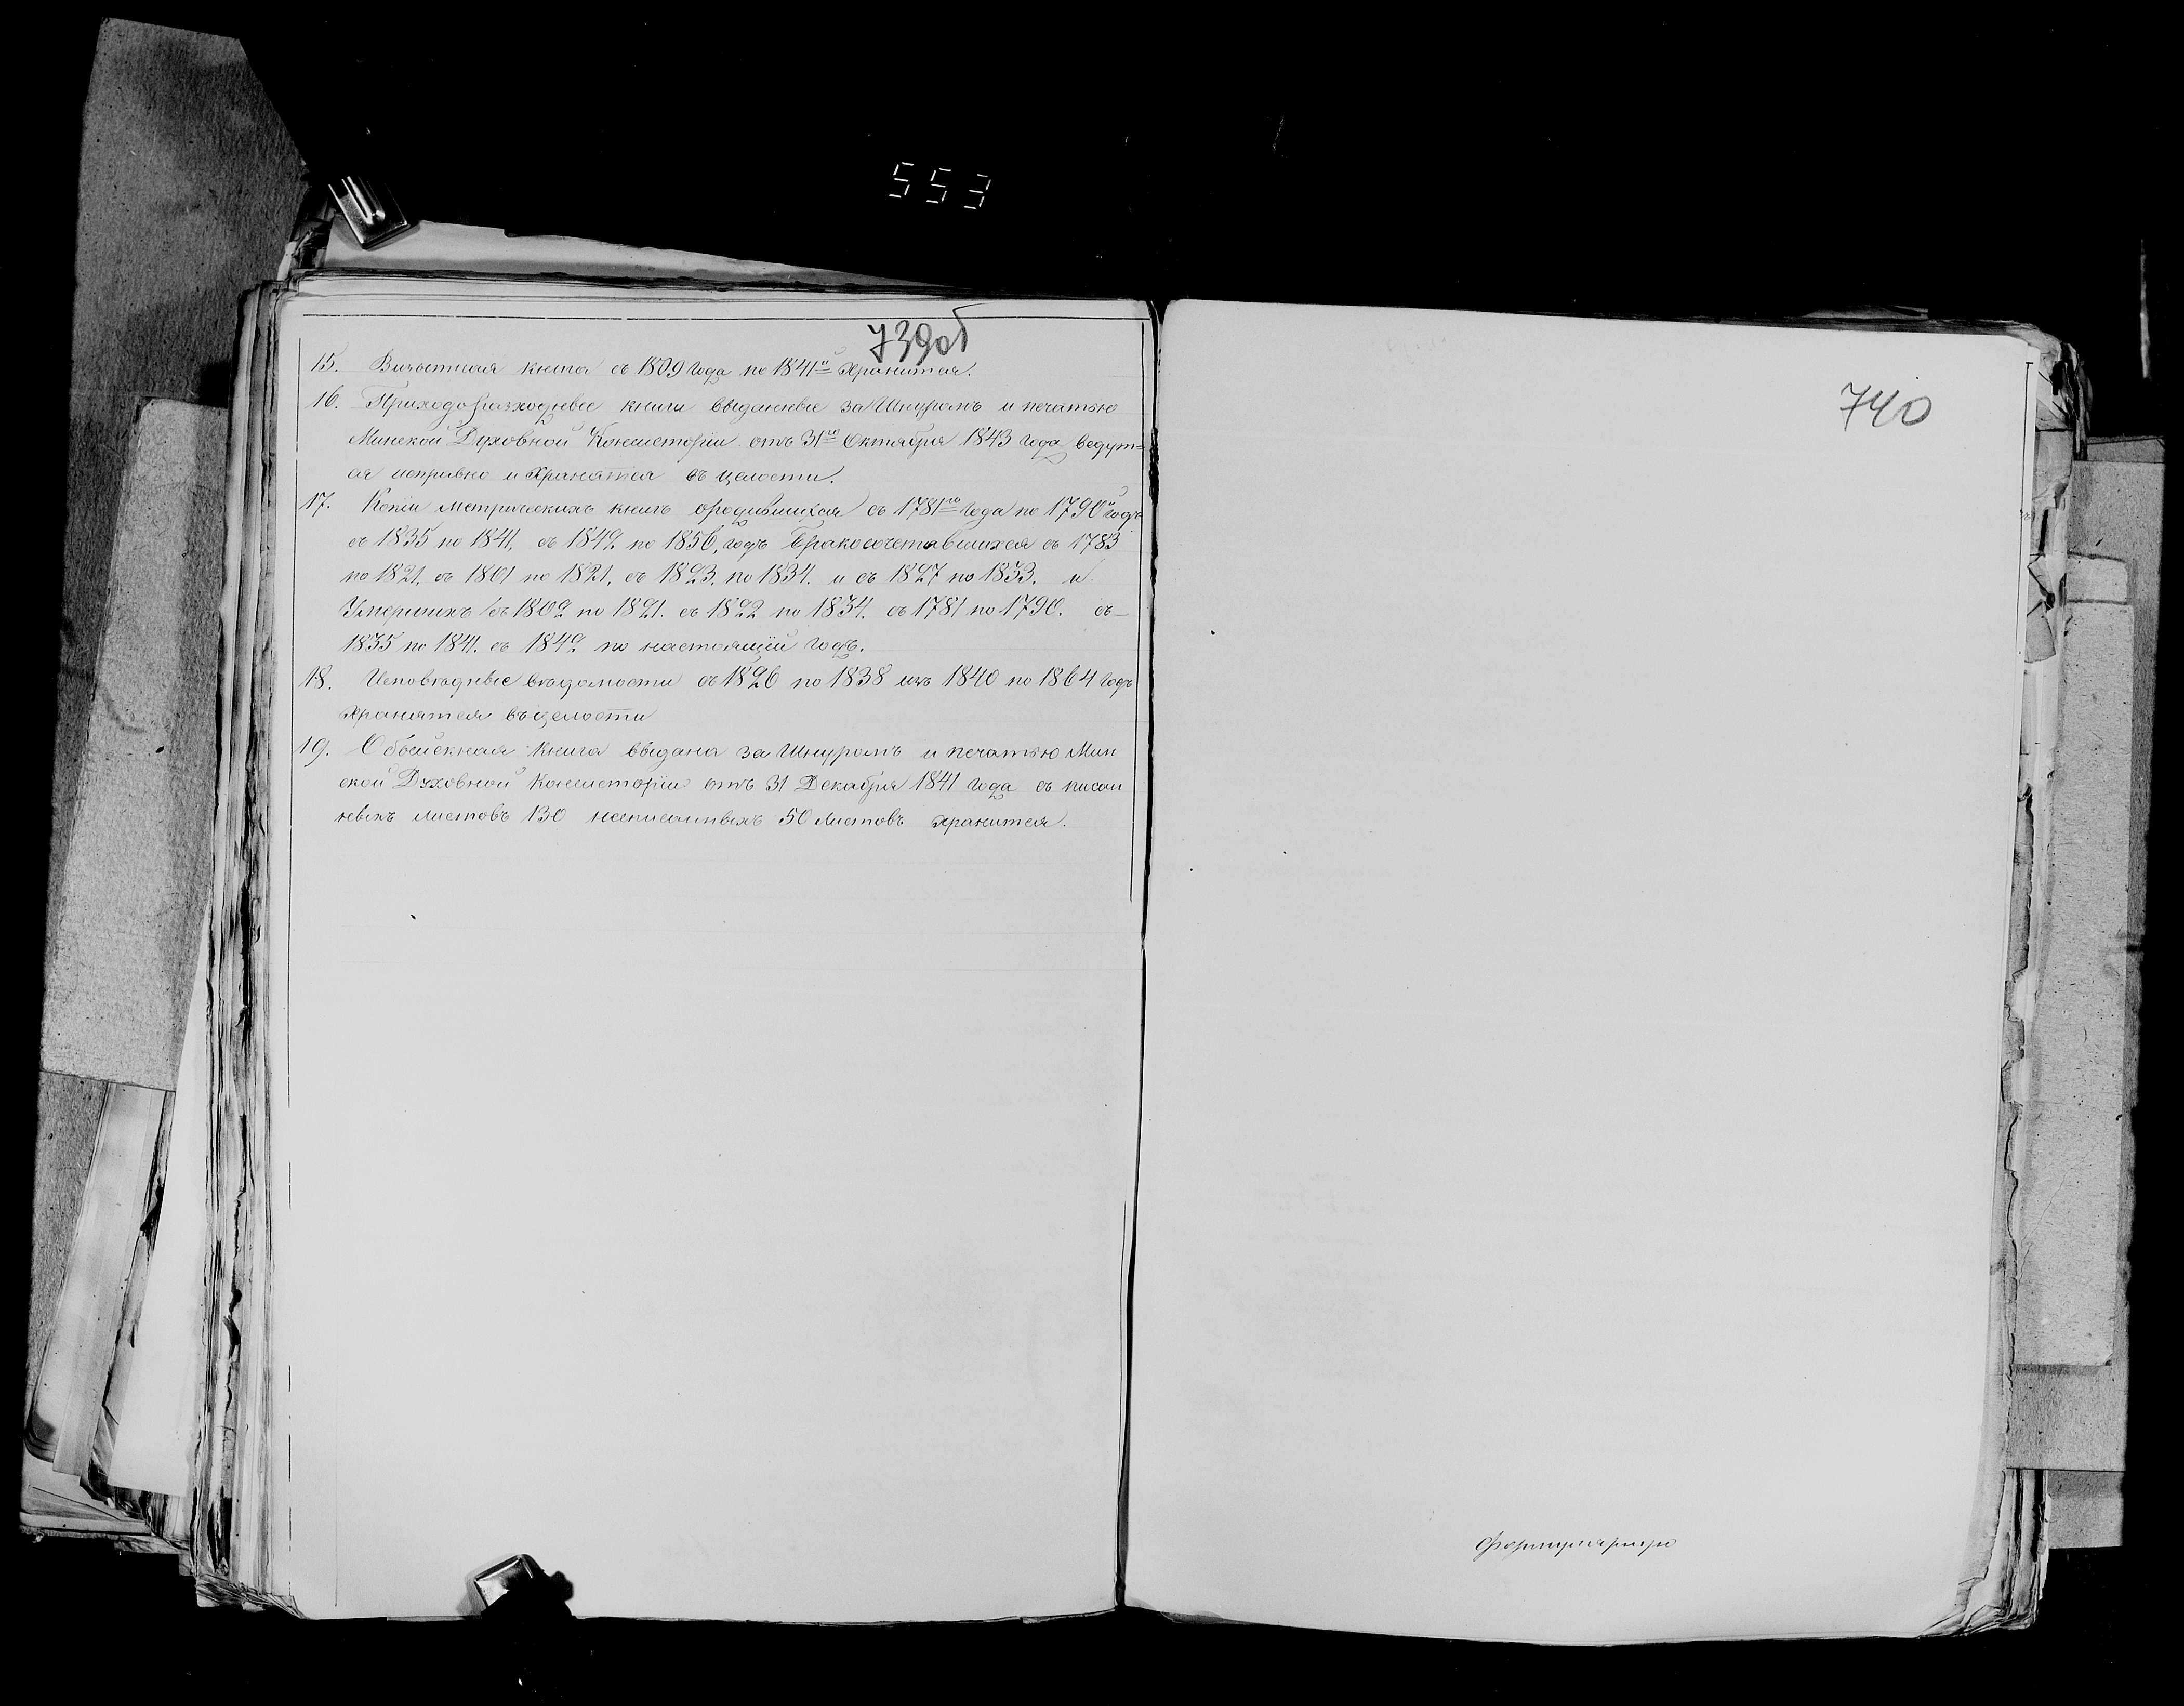 553
739об
15. Визытная книга съ 1809 года по 1841й хранится.
16. Приходоразходные книги выданные за Шнуромъ и печатью
Минской Духовной Консисторіи отъ 31го Октября 1843 года ведут=
ся исправно и хранятся въ целости.
17. Копіи метрическихъ книгъ ородившихся съ 1781го года по 1790й годъ
съ 1835 по 1841, съ 1842 по 1856, годъ Бракосочетавшихся съ 1783
по 1821, съ 1801 по 1821, съ 1823. по 1834. и съ 1827 по 1833. и
Умершихъ съ 1802 по 1821. съ 1822 по 1834. съ 1781 по 1790. съ
1835 по 1841. съ 1842 по настоящій годъ.
18. Исповѣдные вѣдомости съ 1826 по 1838 изъ 1840 по 1864 годъ
хранятся въ целости
19. Обыскная книга выдана за Шнуромъ и печатью Мин
ской Духовной Консисторіи отъ 31 Декабря 1841 года съ писан
ныхъ листовъ 130 неписанныхъ 50 листовъ хранится.
740